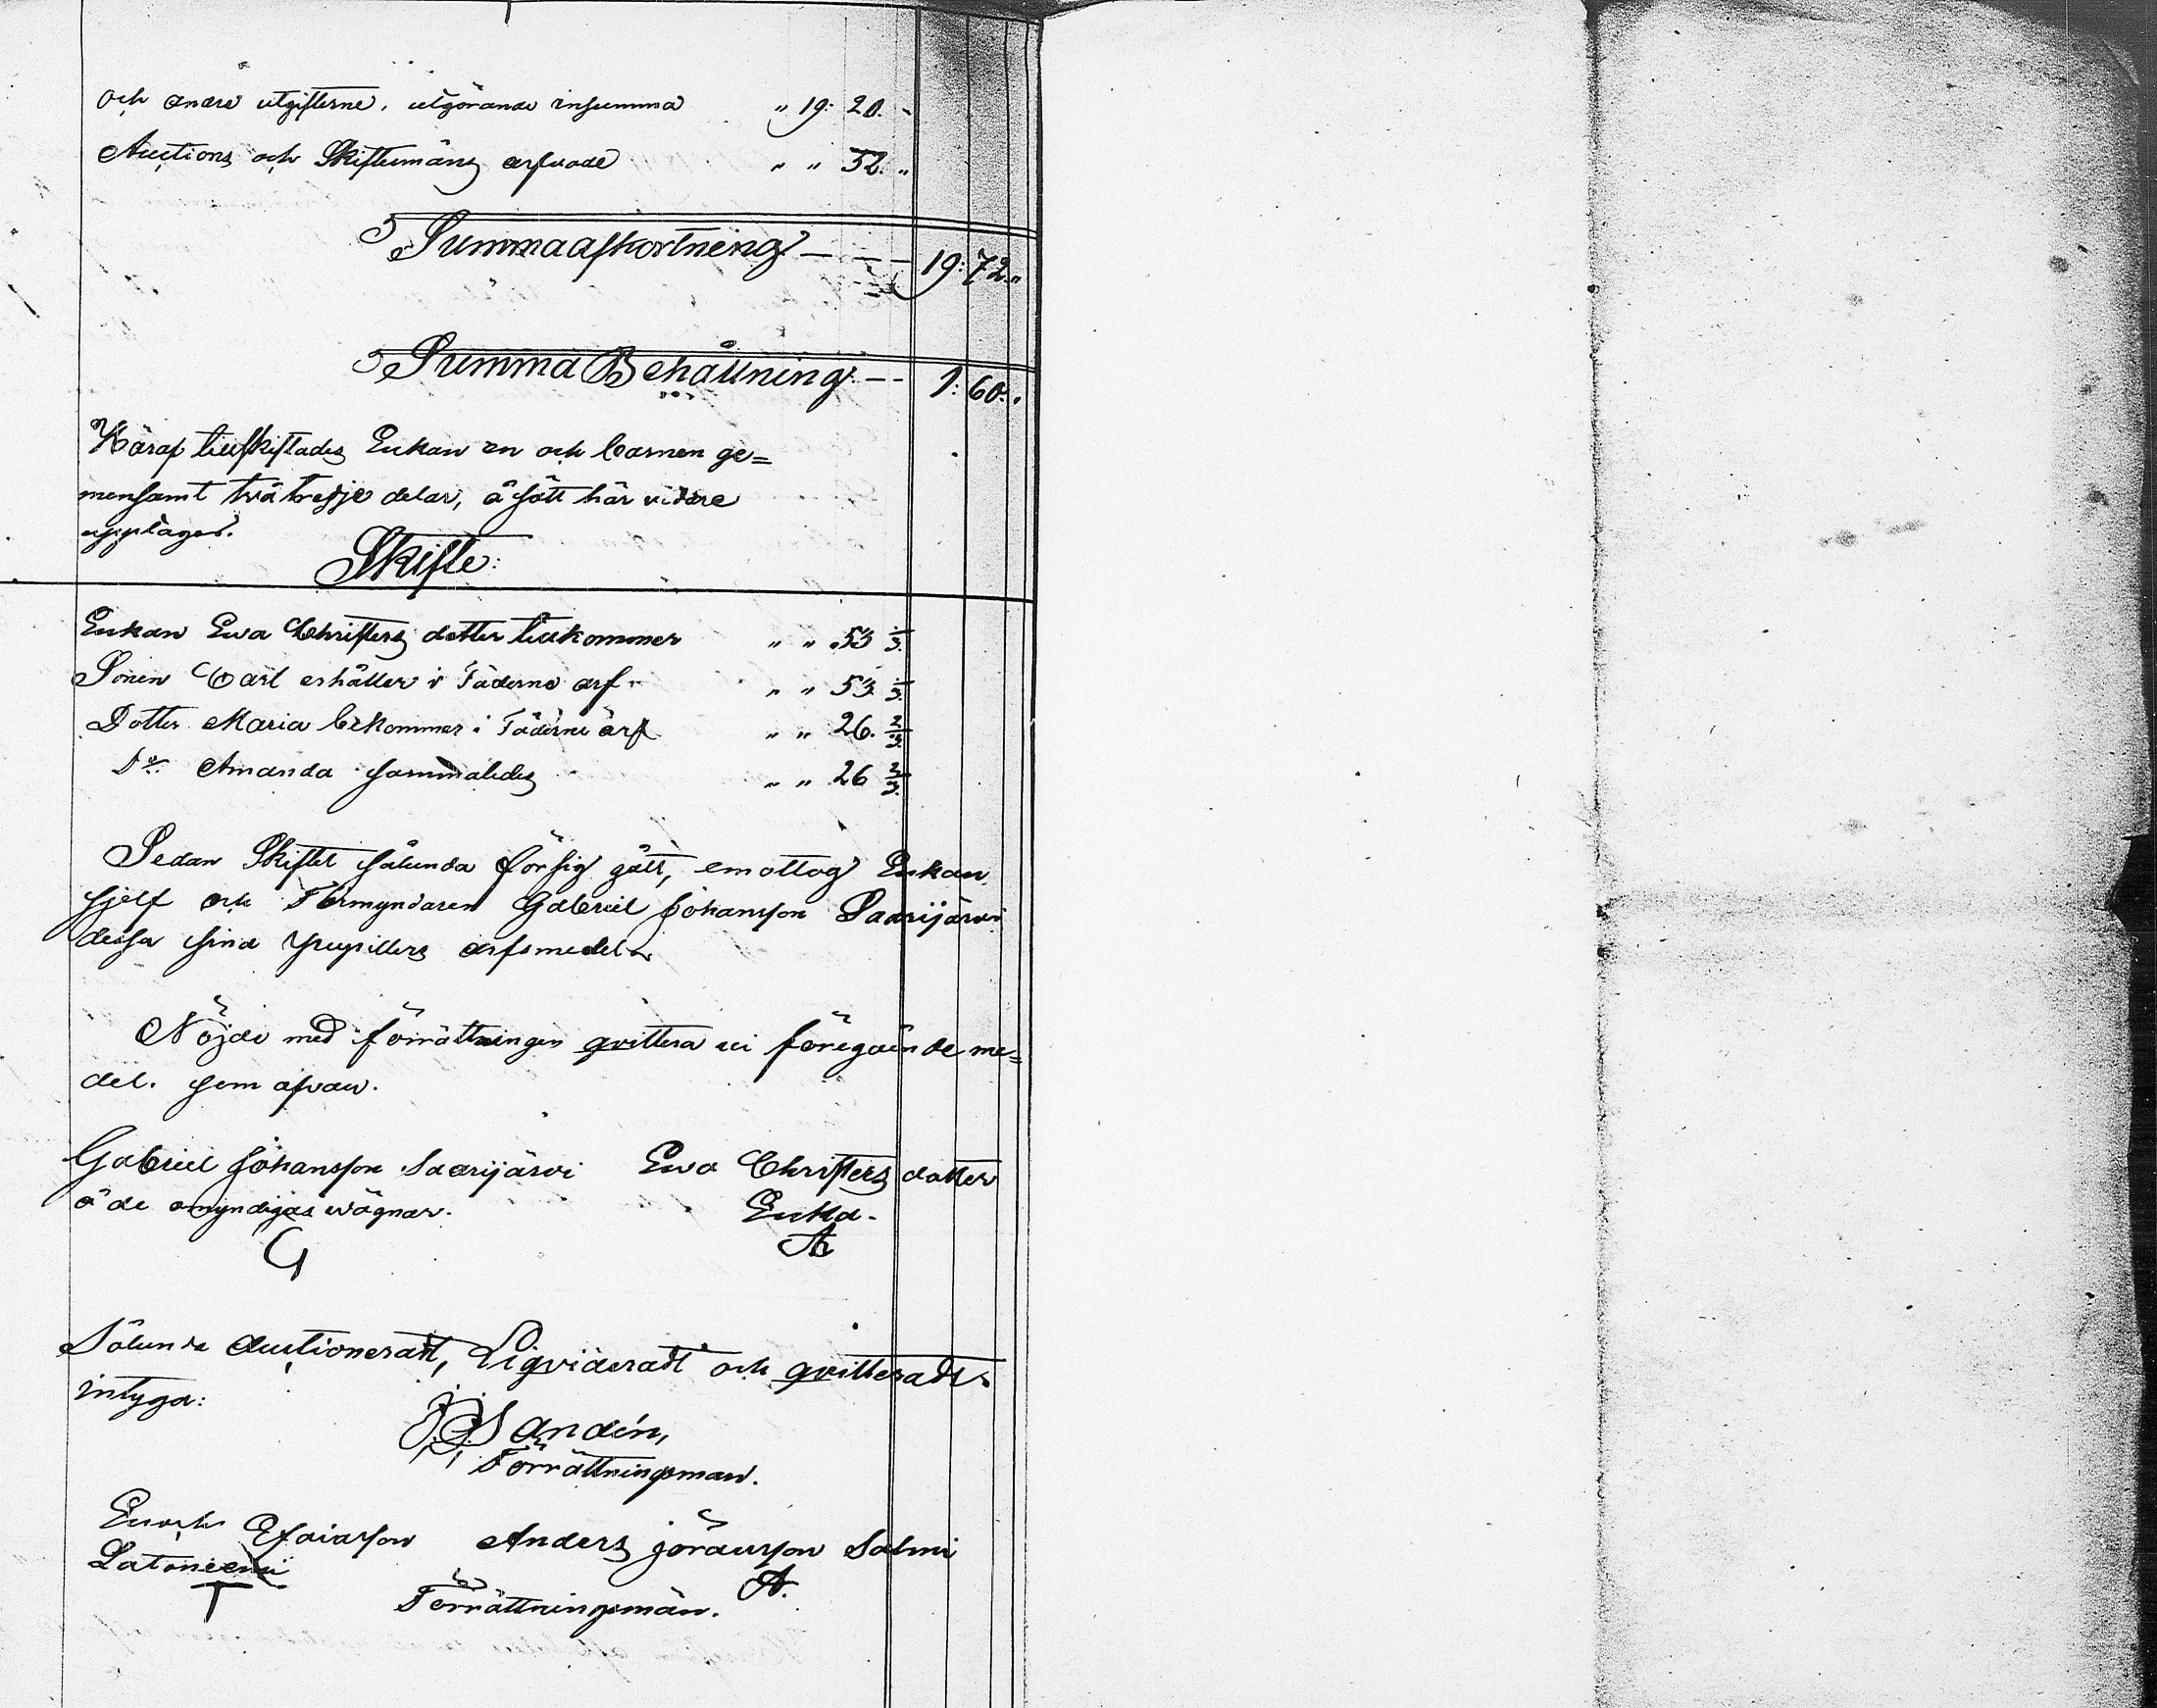 och andre utgifterne, utgörande insumma " 19: 20. -
Auctions och Skiftesmäns arfvode " " 52. "
Summa afkortning - - - 19: 72. "
Summa Behållning: - - 1: 60. "
Häraf tillskiftades Enkan en och barnen ge=
mensamt två tredje delar, å sätt här vidare
upptages.
Skifte:
Enkan Ewa Christers dotter tillkommer " " 53 1/3.
Sonen Carl erhåller i Fäderne arf " " 53 1/3.
Dotter Maria bekommer i Fäderne arf " " 26. 2/3.
Do Amanda sammaledes " " 26 2/3.
Sedan Skiftet sålunda försig gått, emottog Enkan
sjelf och Förmyndaren Gabriel Johansson Saarijärvi
dessa sina pupillers arfsmedel.
Nöjde med förrättningen qvittera vi föregående me=
del. som ofvan.
Gabriel Johansson Saarijärvi Ewa Christers dotter
å de omyndigas wägnar. Enka.
G A
Sålunda Auctioneradt, Liqvideradt och qvitteradt.
intyga:
Sandén,
Förrättningsman.
Enoch Esaiasson Anders Göransson Salmi
Latoniemi A.
T Förrättningsmän.